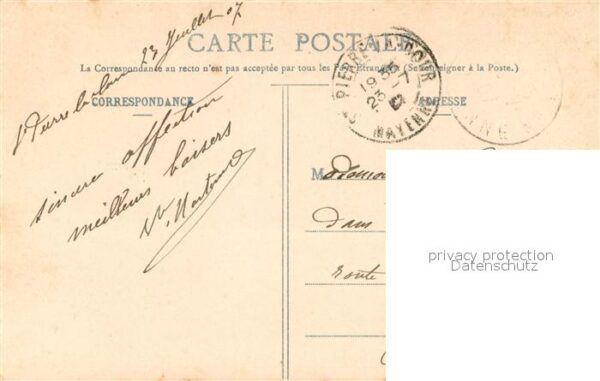 CARTE POSTALE
La Correspondance au recto n'est pas acceptée par tous les Pays Étrangers (Se renseigner à la Poste.)
CORRESPONDANCE
ADRESSE
23 Juillet 07
sincère affection
meilleurs baisers
PIERRE LA COUR
MAYENNE
M
dans
route
privacy protection
Datenschutz